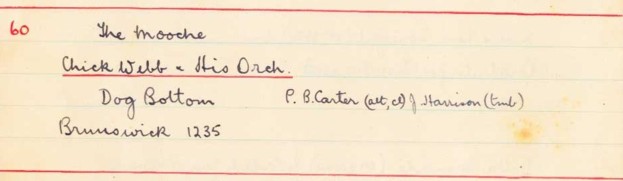 60 The Mooche
Chick Webb & His Orch.
Dog Bottom P. B. Carter (alt, cl) J. Harrison (tmb)
Brunswick 1235